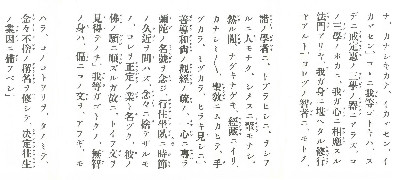 ナ、カナシキカナ、イカヾセン、イ
カヾセン。コヽニ我等ゴトキハ、ス
デニ戒定慧ノ三學ノ器ニアラズ、コ
ノ三學ノホカニ、我ガ心ニ相應スル
法門アリヤ、我ガ身ニ堪ヘタル修行
ヤアルト、ヨロヅノ智者ニモトメ、
諸ノ學者ニ、トブラヒシニ、ヲシフ
ルニ人モナク、シメスニ輩モナシ。
然ル間、ナゲキナゲキ、經藏ニイリ、
カナシミ〳〵、聖敎ニムカヒテ、手
ヅカラ、ミヅカラ、ヒラキ見シニ、
善導和尚ノ觀經ノ疏ノ、一心ニ專ラ
彌陀ノ名號ヲ念ジ、行住坐臥ニ時節
ノ久近ヲ問ハズ、念々ニ捨テザルモ
ノ、コレヲ正定ノ業ト名ヅク、彼ノ
佛ノ願ニ順ズルガ故ニ、トイフ文ヲ
見得テノチ、我等ガゴトクノ、無智
ノ身ハ、偏ニコノ文ヲ、アフギ、モ
ハラ、コノコトハリヲ、タノミテ、
念々不捨ノ稱名ヲ修シテ、決定往生
ノ業因ニ備フベシ」